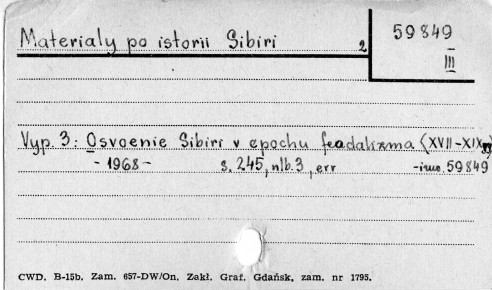 Materialy po istorii Sibiri 2
59849
III
Vyp. 3: Osvoenie Sibiri v epochu feodalizma (XVII-XIX
- 1968 - s. 245, nlb. 3, err -inw. 59849
CWD. B-15b. Zam. 657-DW/On. Zakł. Graf. Gdańsk, zam. nr 1795.